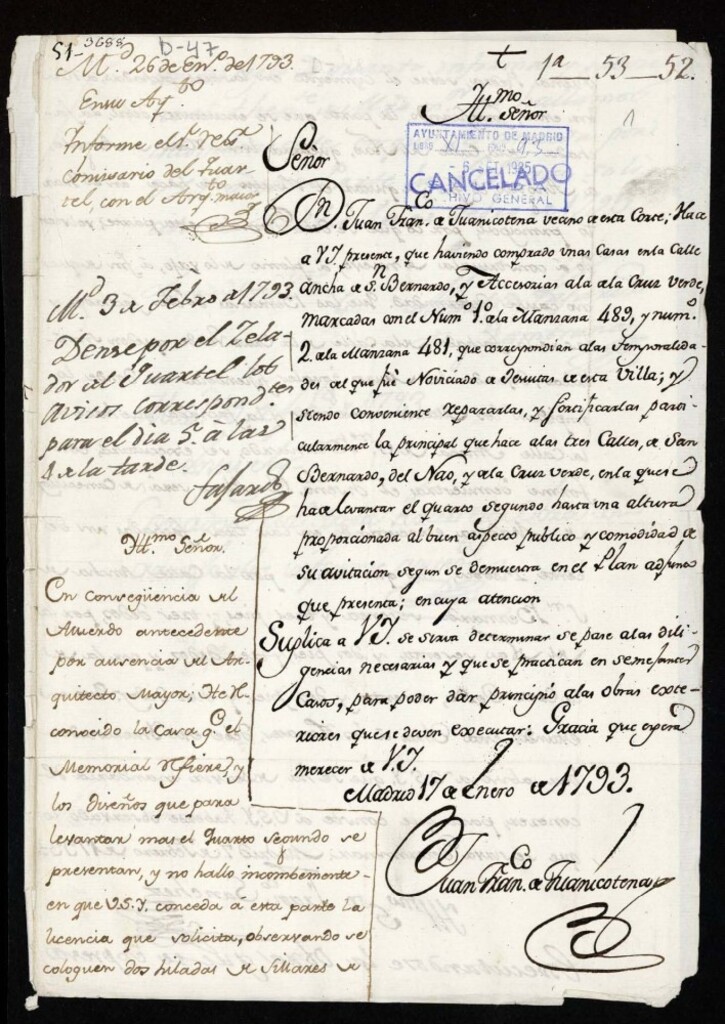 51-3688 D-47
M.d 26 de En.o de 1793.
En su Ay.to
Informe el S.r Reg.r
Comisario del Quar-
tel, con el Arq.to maior
M.d 3 de Febro de 1793.
Dense por el Zela-
dor del Quartel los
avisos correspond.tes
para el dia 5. à las
4 de la tarde.
Fajardo
Ill.mo Señor.
En conseqüencia del
Acuerdo antecedente
por ausencia del Ar-
quitecto Mayor; He re-
conocido la Casa q.e el
Memorial refiere, y
los diseños que para
levantar mas el Quarto segundo se
presentan, y no hallo incombeniente
en que V.S.Y. conceda à esta parte la
licencia que solicita, observando se
coloquen dos hiladas de sillares de
t
1a 53 52.
Ill.mo Señor
1
AYUNTAMIENTO DE MADRID
CANCELADO
ARCHIVO GENERAL
Señor
Dn. Juan Fran.co de Yuanicotena vecino de esta Corte; Hace
a V.I. presente, que haviendo comprado unas Casas en la Calle
ancha de S.n Bernardo, y Accesorias a la de la Cruz verde,
marcadas con el Num.o 1.o de la Manzana 489, y num.o
2. de la Manzana 481, que correspondian a las Temporalida-
des del que fue Noviciado de Jesuitas de esta Villa; y
siendo conveniente repararlas, y fortificarlas parti-
cularmente la principal que hace a las tres Calles, de San
Bernardo, del Nao, y de la Cruz verde, en la que se
ha de levantar el quarto segundo hasta una altura
proporcionada al buen aspecto publico y comodidad de
su avitacion segun se demuestra en el Plan adjunto
que presenta; en cuya atencion
Suplica a V.I. se sirva determinar se pase a las dili-
gencias necesarias y que se practican en semejantes
Casos, para poder dar principio a las obras exte-
riores que se deven executar: Gracia que espera
merecer de V.I.
Madrid 17 de Enero de 1793.
Juan Fran.co de Yuanicotena